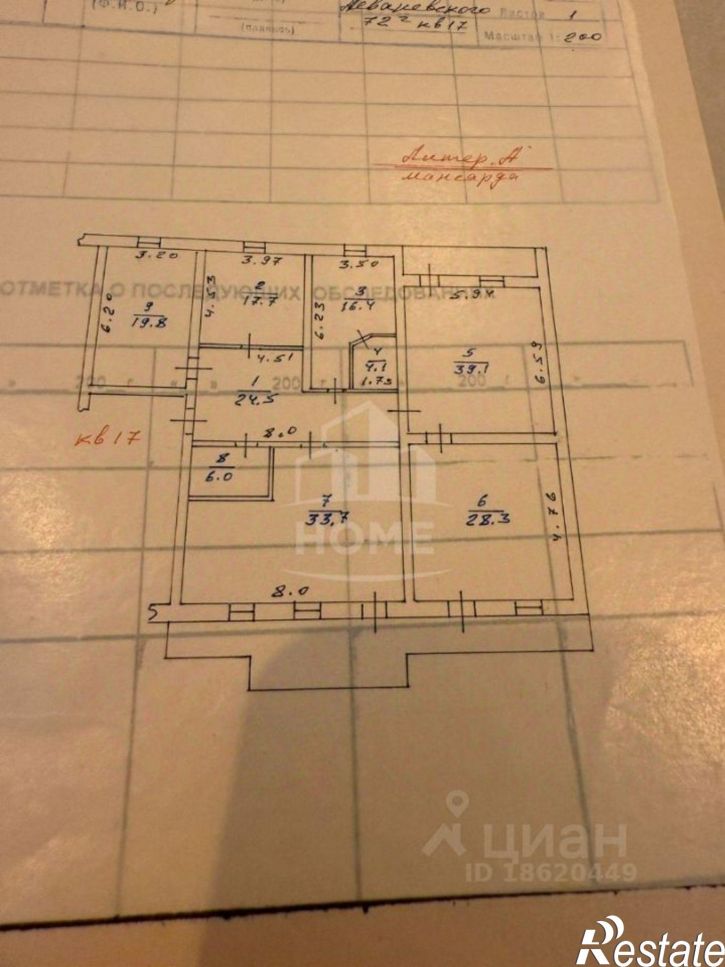 (Ф.И.О.)
(подпись)
Леваневского
72² кв 17
Листов 1
Масштаб 1: 200
Литер. А
мансарда
ОТМЕТКА О ПОСЛЕДУЮЩИХ ОБСЛЕДОВАНИЯХ
3.20
3.97
3.50
5.94
6.20
9
19.8
4.53
2
17.7
6.23
3
16.4
4
4.1
1.73
5
39.1
6.59
4.51
1
24.5
8.0
кв 17
8
6.0
7
33,7
6
28.3
4.76
8.0
HOME
циан
ID 18620449
Restate